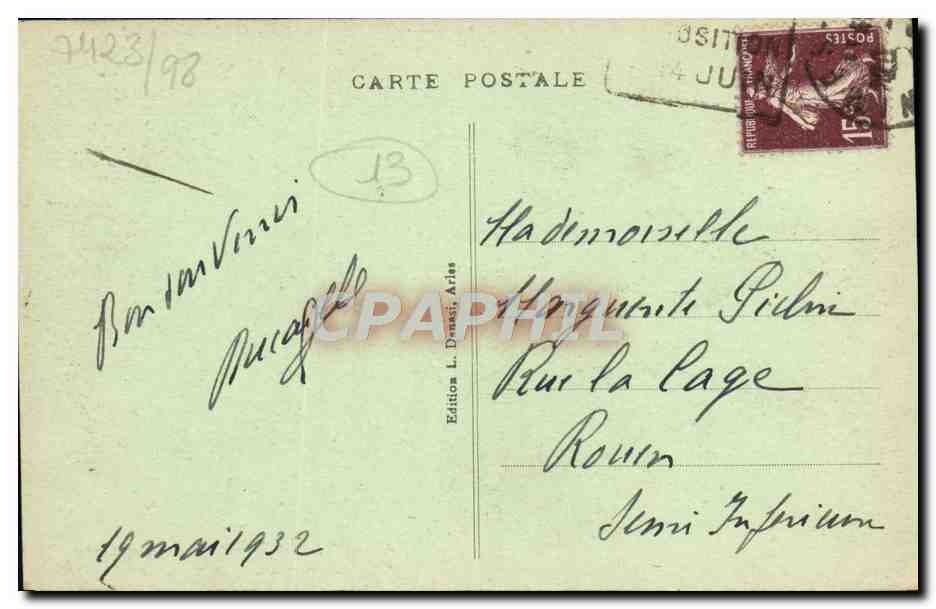 7423/98
CARTE POSTALE
OSITION
14 JUIN
POSTES
REPUBLIQUE FRANÇAISE
15c
13
Bon souvenir
Edition L. Denasi, Arles
CPAPHIL
Mademoiselle
Marguerite
Rue la Cage
Rouen
Seine Inferieure
19 mai 1932